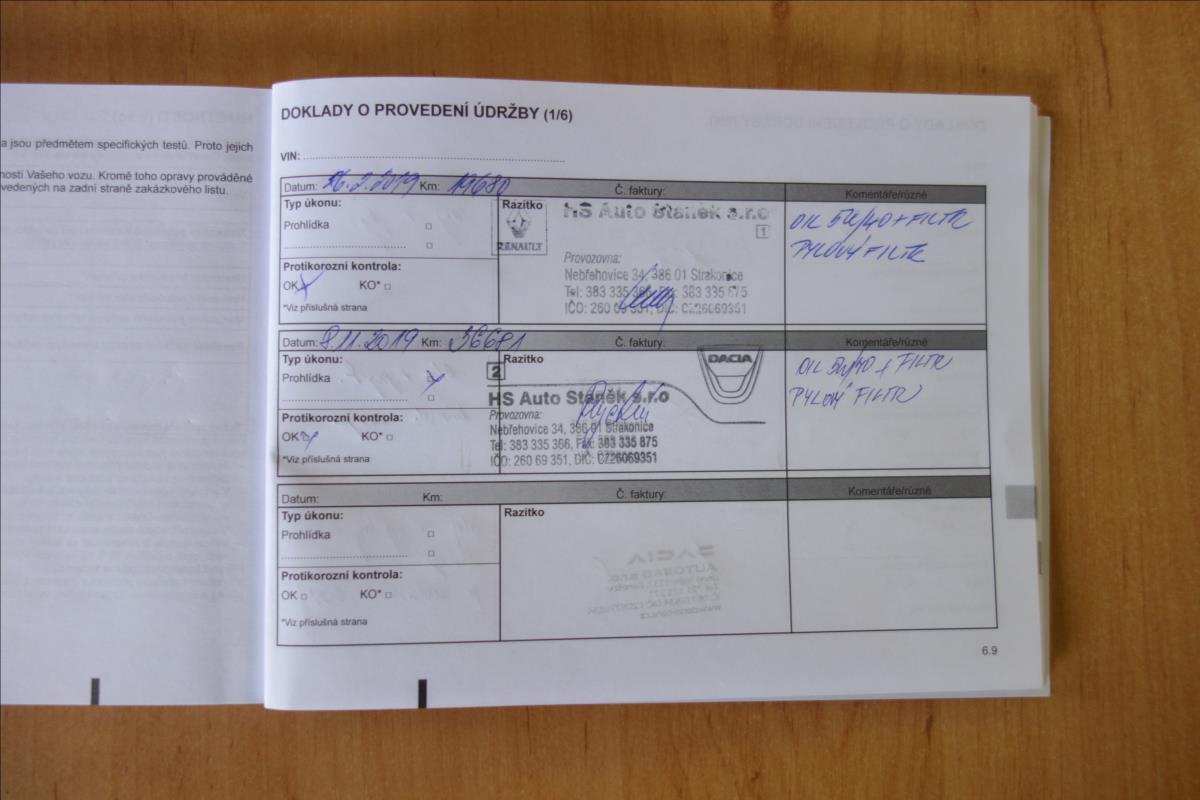 a jsou předmětem specifických testů. Proto jejich
nosti Vašeho vozu. Kromě toho opravy prováděné
vedených na zadní straně zakázkového listu.
DOKLADY O PROVEDENÍ ÚDRŽBY (1/6)
VIN:
Datum: 26.2.2019 Km: 19680 Č. faktury: Komentáře/různé
Typ úkonu:
Prohlídka
Protikorozní kontrola:
OK KO*
*Viz příslušná strana
Razítko
RENAULT
HS Auto Staněk s.r.o
1
Provozovna:
Nebřehovice 34, 386 01 Strakonice
Tel: 383 335 366, Fax: 383 335 875
IČO: 260 69 351, DIČ: CZ26069351
OIL 5W/40 + FILTR
PYLOVÝ FILTR
Datum: 8.11.2019 Km: 36681 Č. faktury: Komentáře/různé
Typ úkonu:
Prohlídka
Protikorozní kontrola:
OK KO*
*Viz příslušná strana
Razítko
2
DACIA
HS Auto Staněk s.r.o
Provozovna:
Nebřehovice 34, 386 01 Strakonice
Tel: 383 335 366, Fax: 383 335 875
IČO: 260 69 351, DIČ: CZ26069351
OIL 5W/40 + FILTR
PYLOVÝ FILTR
Datum: Km: Č. faktury: Komentáře/různé
Typ úkonu:
Prohlídka
Protikorozní kontrola:
OK KO*
*Viz příslušná strana
Razítko
6.9